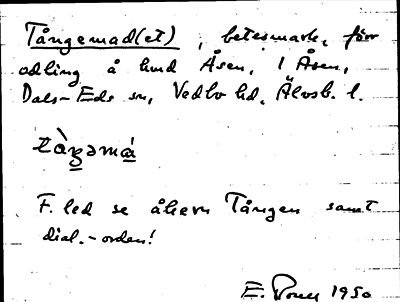 Tångemad(et), betesmark, förr
odling å hmd Åsen, i Åsen,
Dals-Eds sn, Vedbo hd, Älvsb. l.
tàŋəmá
F. led se åkern Tången samt
dial.-orden!
E. 1950